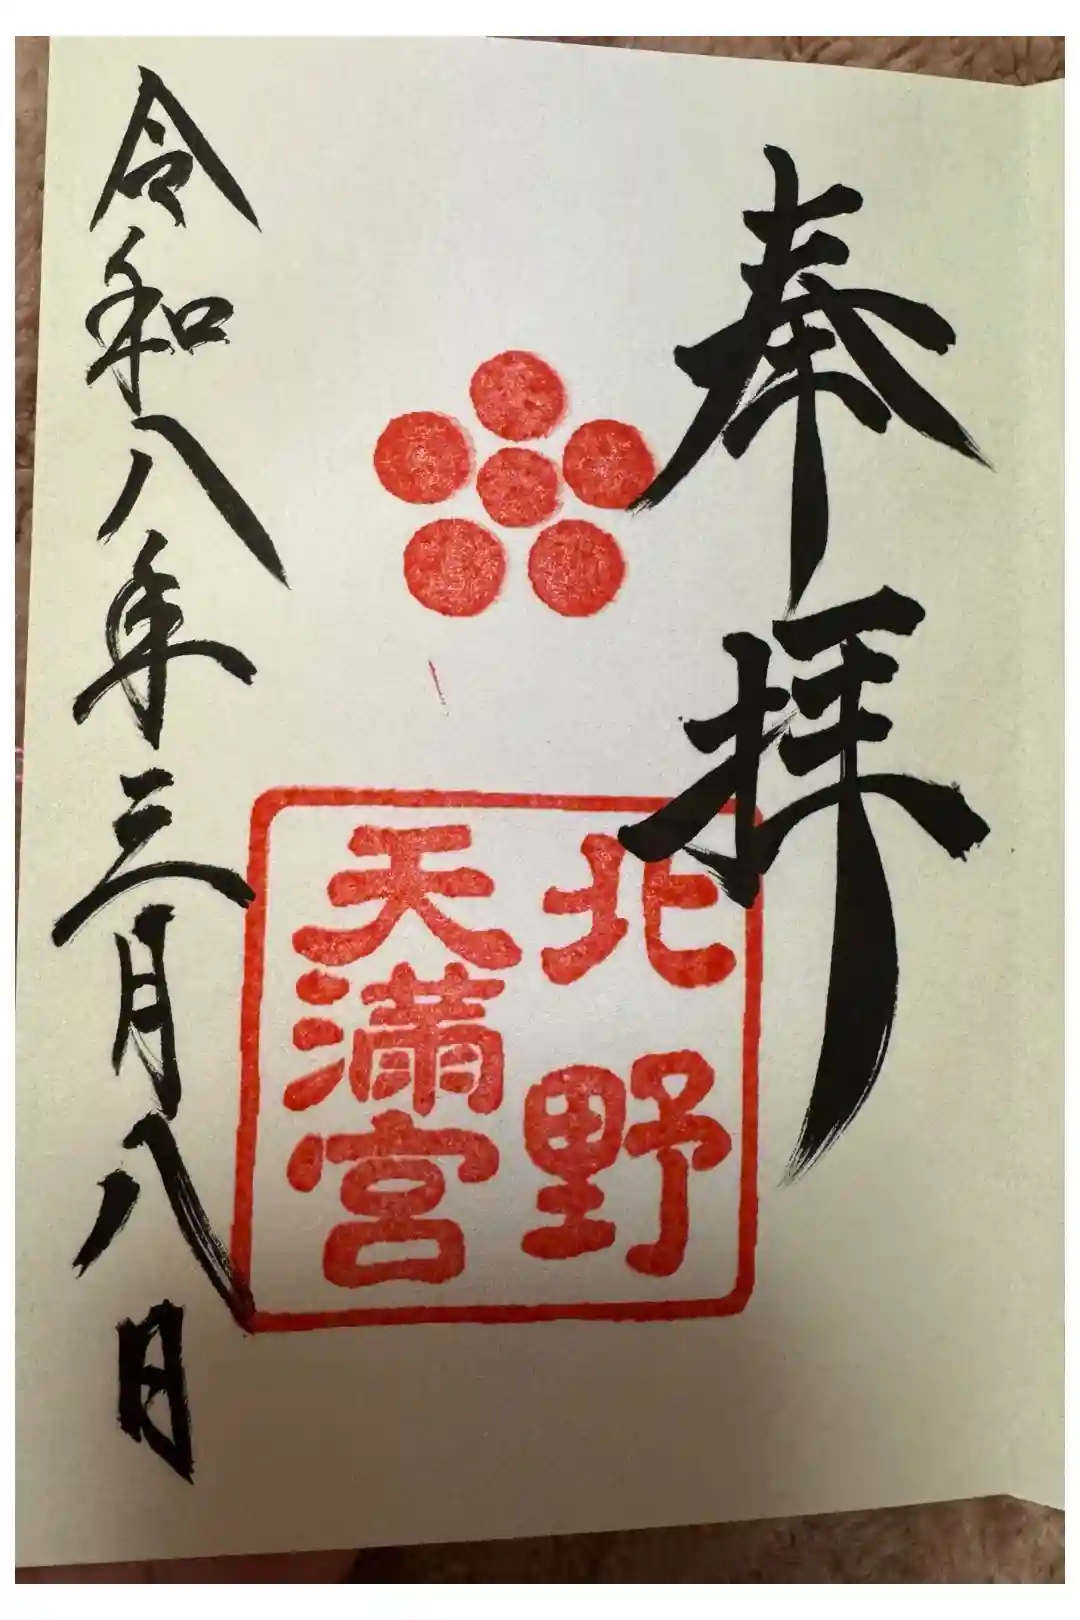 奉拝
北野
天満宮
令和八年三月八日